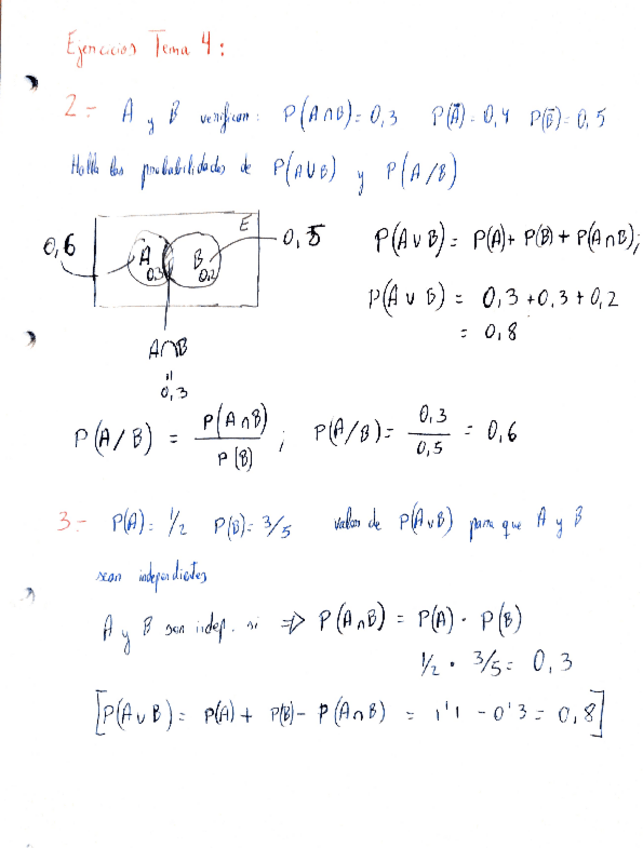 Ejercicios Tema 4:
2.- A y B verifican: P(A∩B)=0,3 P(Ā)=0,4 P(B̄)=0,5
Halla las probabilidades de P(A∪B) y P(A/B)
E
0,6 A B 0,5
0,3 0,2
A∩B
=
0,3
P(A∪B) = P(A)+ P(B) + P(A∩B);
P(A∪B) = 0,3 + 0,3 + 0,2
= 0,8
P(A/B) = P(A∩B) / P(B) ; P(A/B) = 0,3 / 0,5 = 0,6
3.- P(A)= 1/2 P(B)= 3/5 valor de P(A∪B) para que A y B
sean independientes
A y B son indep. si ⇒ P(A∩B) = P(A) · P(B)
1/2 · 3/5 = 0,3
[P(A∪B) = P(A) + P(B) - P(A∩B) = 1'1 - 0'3 = 0,8]